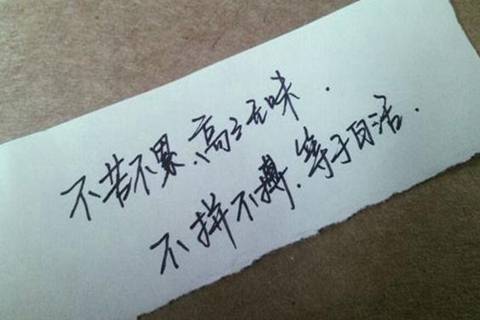 不苦不累、高三无味.
不拼不搏.等于白活.